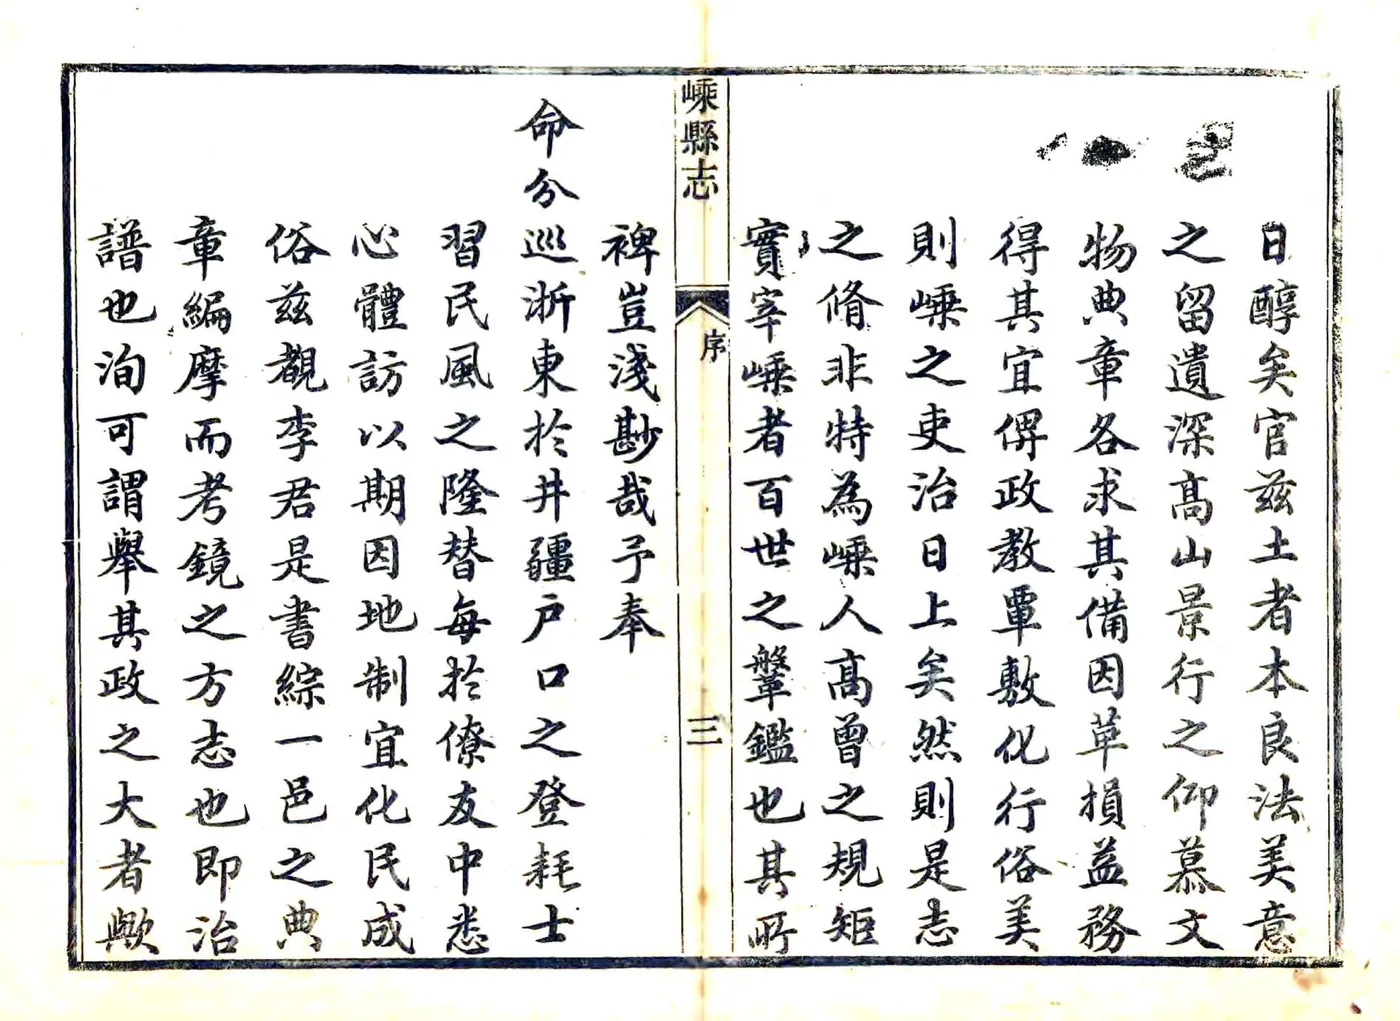 日醇矣官茲土者本良法美意
之留遺深高山景行之仰慕文
物典章各求其備因革損益務
得其宜俾政教覃敷化行俗美
則嵊之吏治日上矣然則是志
之脩非特為嵊人高曾之規矩
實宰嵊者百世之鞶鑑也其所
嵊縣志
序
三
裨豈淺尠哉予奉
命分巡浙東於井疆戶口之登耗士
習民風之隆替每於僚友中悉
心體訪以期因地制宜化民成
俗茲覩李君是書綜一邑之典
章編摩而考鏡之方志也即治
譜也洵可謂舉其政之大者歟